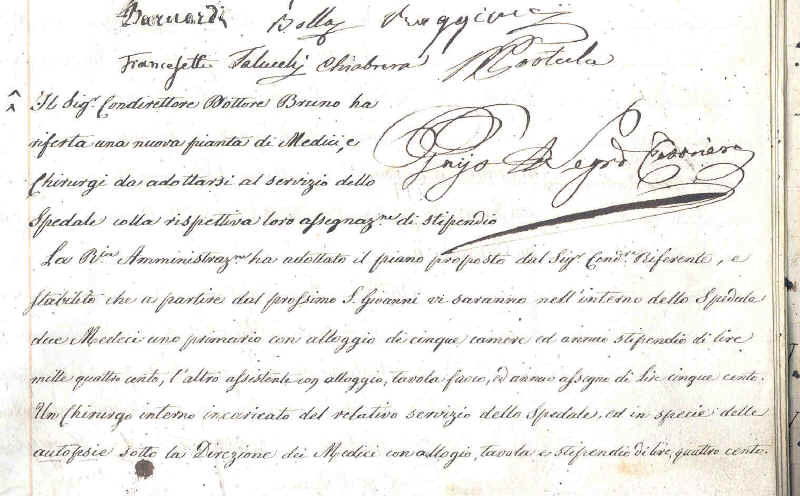 Bernardi Bolla Vaggione
Franceschetti Talucchi Chiabrera Portula
Il Sig.r Condirettore Dottore Bruno ha
riferta una nuova pianta di Medici, e
Chirurgi da adottarsi al servizio dello
Spedale colla rispettiva loro assegnaz.ne di stipendio
La R.ia Amministraz.ne ha adottato il piano proposto dal Sig.r Cond.re Riferente, e
stabilito che a partire dal prossimo S. Giovanni vi saranno nell'interno dello Spedale
due Medeci uno primario con alloggio di cinque camere ed annuo stipendio di lire
mille quattro cento, l'altro assistente con alloggio, tavola fuoco, ed annuo assegno di lire cinque cento.
Un Chirurgo interno incaricato del relativo servizio dello Spedale, ed in specie delle
autopsie sotto la Direzione dei Medici con allogio, tavola e stipendio di lire quattro cento.